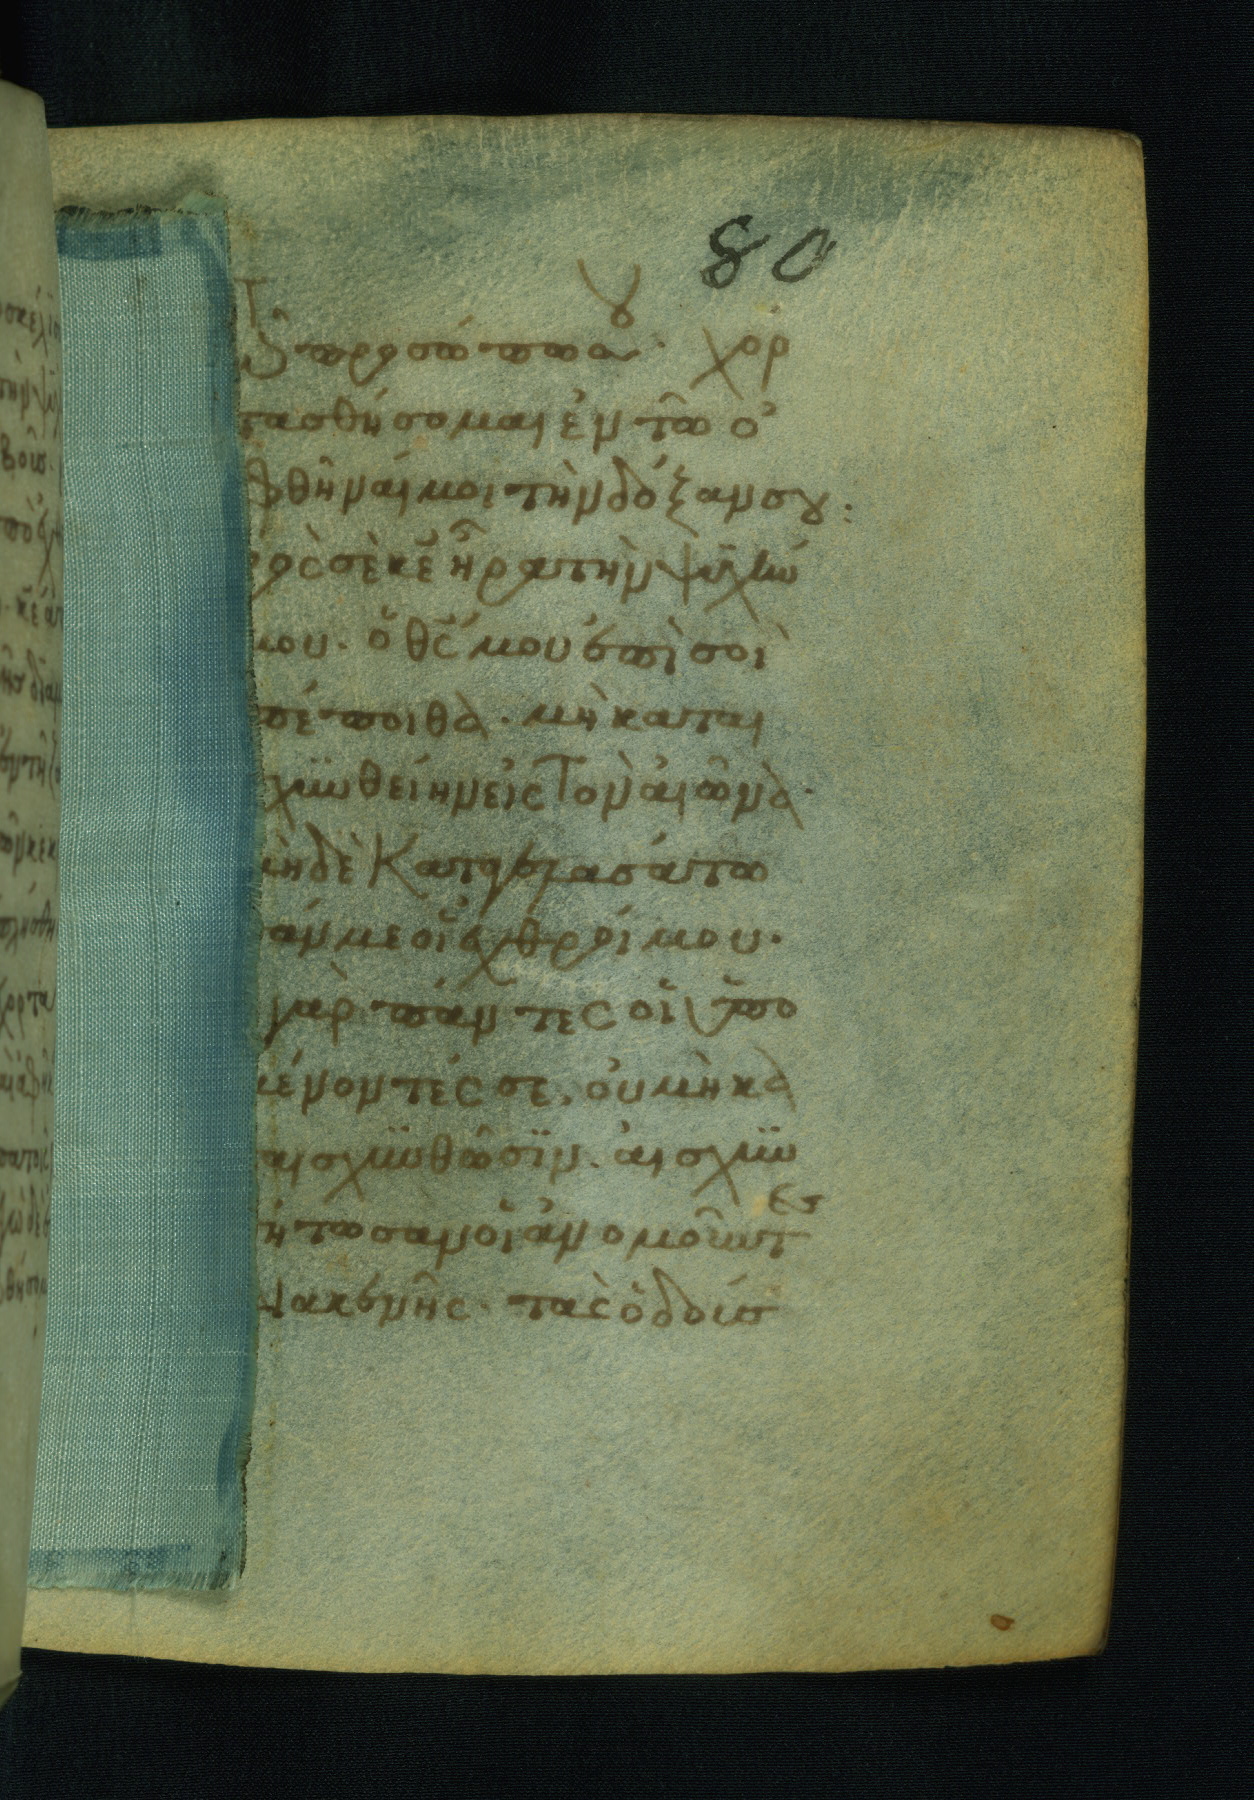 80
τῶ προσώπω σου· χορ
τασθήσομαι ἐν τῶ ὀ
φθῆναί μοι τὴν δόξαν σου:
ρὸς σὲ κε ἦρα τὴν ψυχήν
μου· ὁ θς μου ἐπὶ σοὶ
πέποιθα· μὴ καται
χυνθείην εἰς τὸν αἰῶνα·
μηδὲ καταγελασάτω
σάν με οἱ ἐχθροί μου·
γὰρ πάντες οἱ ὑπο
μένοντές σε, οὐ μὴ κα
αισχυνθῶσιν· αἰσχυν
ήτωσαν οἱ ἀνομοῦντες
διακενῆς· τὰς ὁδούς